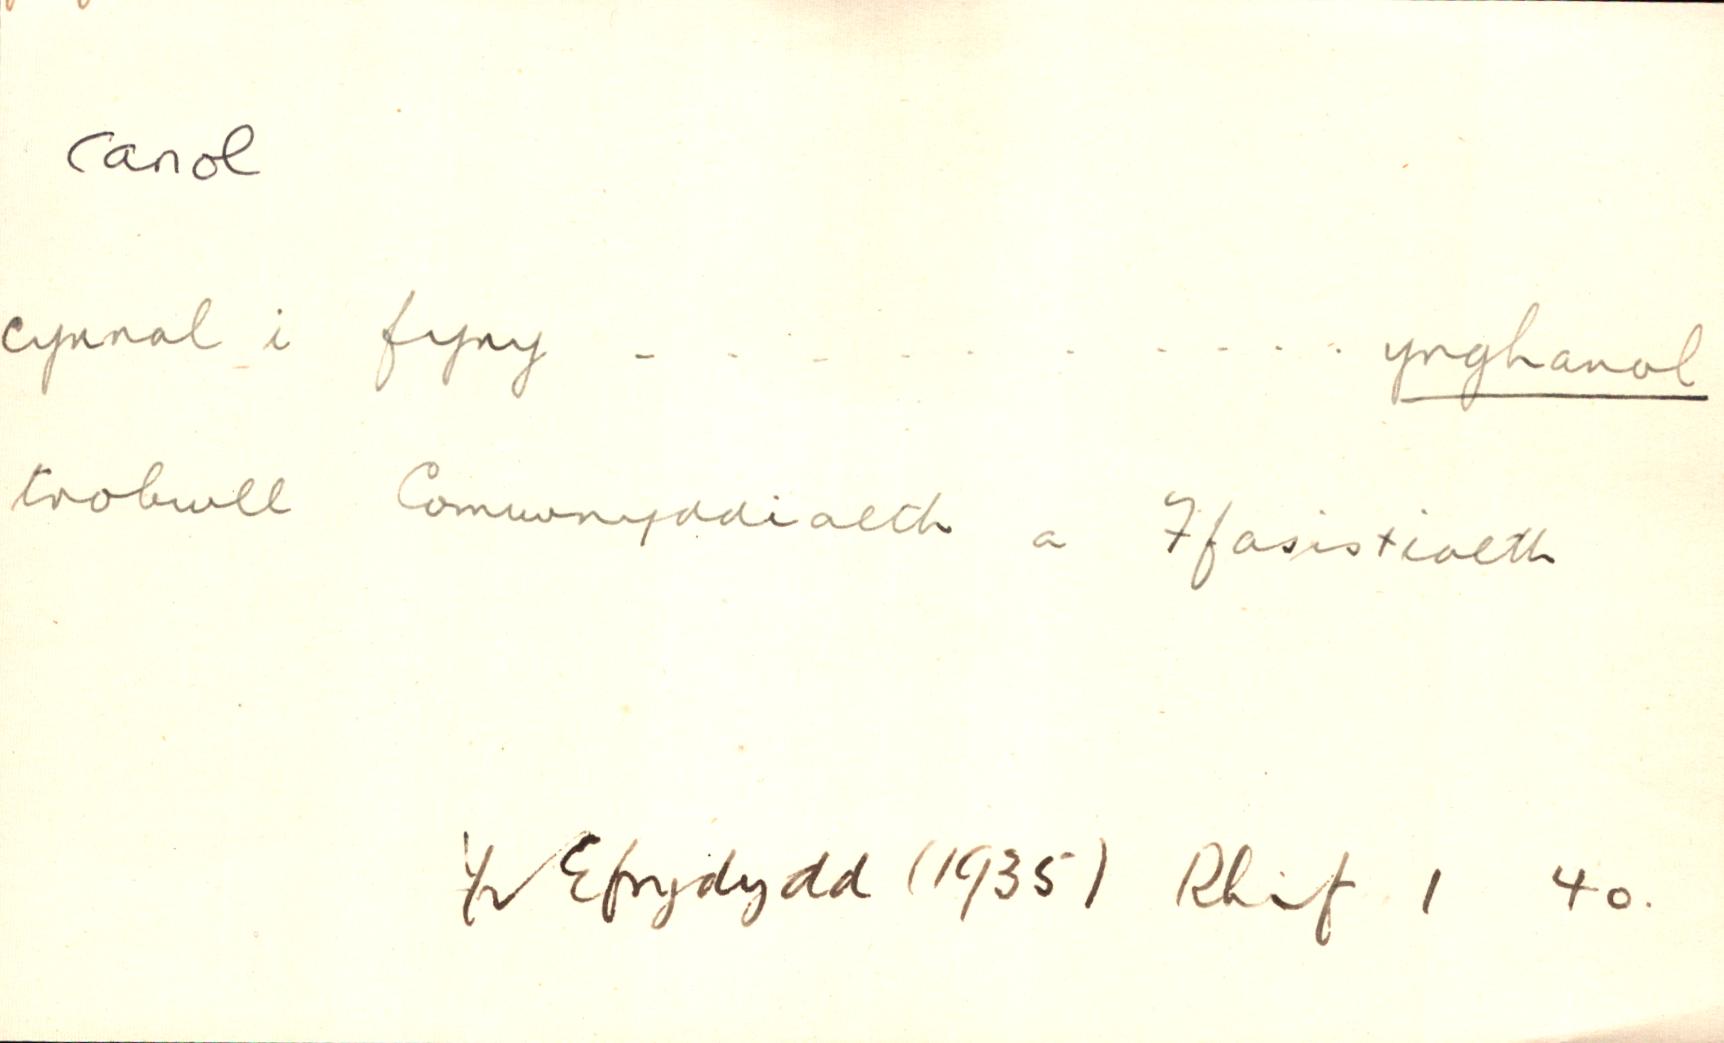 canol
cynnal i fyny - . . . . . . . . . . ynghanol
trobwll Comwnyddiaeth a Ffasistiaeth
Yr Efrydydd (1935) Rhif 1 40.